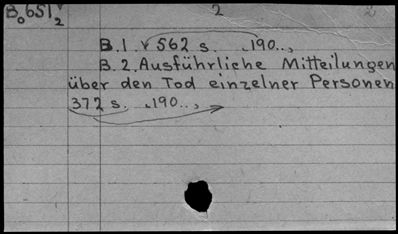 B₀651₂ 2 2
B.1. v 562 s. ,190..,
B.2. Ausführliche Mitteilungen
über den Tod einzelner Personen
372 s. ,190..,